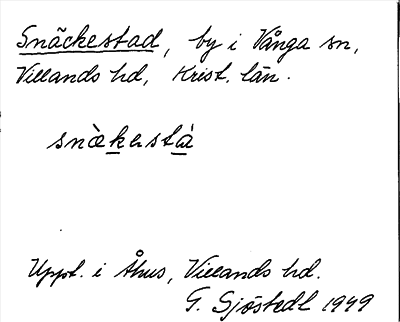 Snäckestad, by i Vånga sn,
Villands hd, Krist. län.
snæ̀kɘstà
Uppt. i Åhus, Villands hd.
G. Sjöstedt 1949